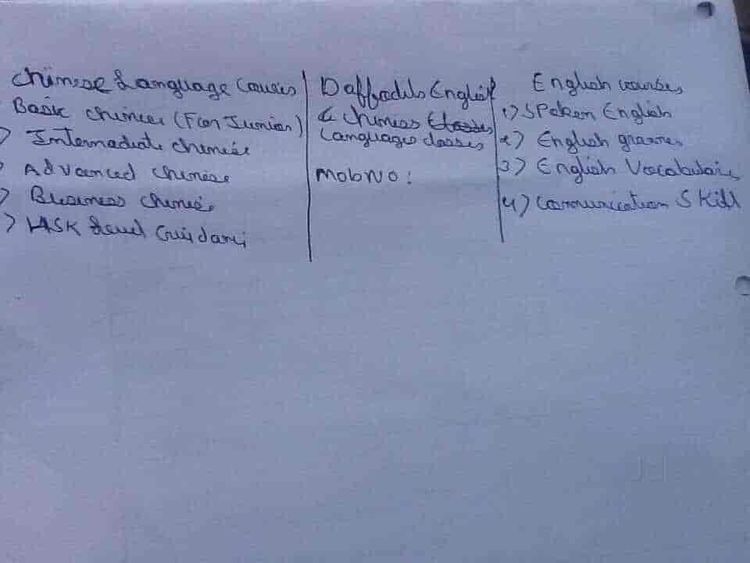 Chinese Language Courses
Basic Chinese (For Junior)
> Intermadiate chinese
> Advanced chinese
> Business chinese
> HSK level Guidance
Daffodils English
& chinese classes
Language classes
MobNo:
English courses
1) SPoken English
2) English grammer
3) English Vocabulary
4) Communication Skill